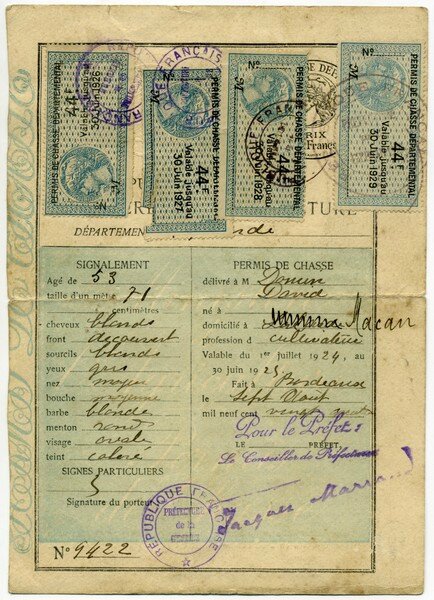 Nº
PERMIS DE CHASSE DÉPARTEMENTAL
44F
Valable jusqu'au
30 Juin 1926
PERMIS DE CHASSE DÉPARTEMENTAL
44F
Valable jusqu'au
30 Juin 1927
PERMIS DE CHASSE DÉPARTEMENTAL
44F
Valable jusqu'au
30 Juin 1928
Nº
PERMIS DE CHASSE DÉPARTEMENTAL
44F
Valable jusqu'au
30 Juin 1929
PRIX
Francs
DÉPARTEMENT
SIGNALEMENT
Agé de 53
taille d'un mètre 71
centimètres
cheveux blonds
front découvert
sourcils blonds
yeux gris
nez moyen
bouche moyenne
barbe blonde
menton rond
visage ovale
teint coloré
SIGNES PARTICULIERS
Signature du porteur
Nº 9422
PERMIS DE CHASSE
délivré à M
David
né à
domicilié à Macau
profession d cultivateur
Valable du 1er juillet 1924, au
30 juin 1925
Fait à Bordeaux
le Sept Août
mil neuf cent vingt quatre
Pour le Préfet
LE PRÉFET,
Le Conseiller de Préfecture
RÉPUBLIQUE FRANÇAISE
PRÉFECTURE
de la
GIRONDE